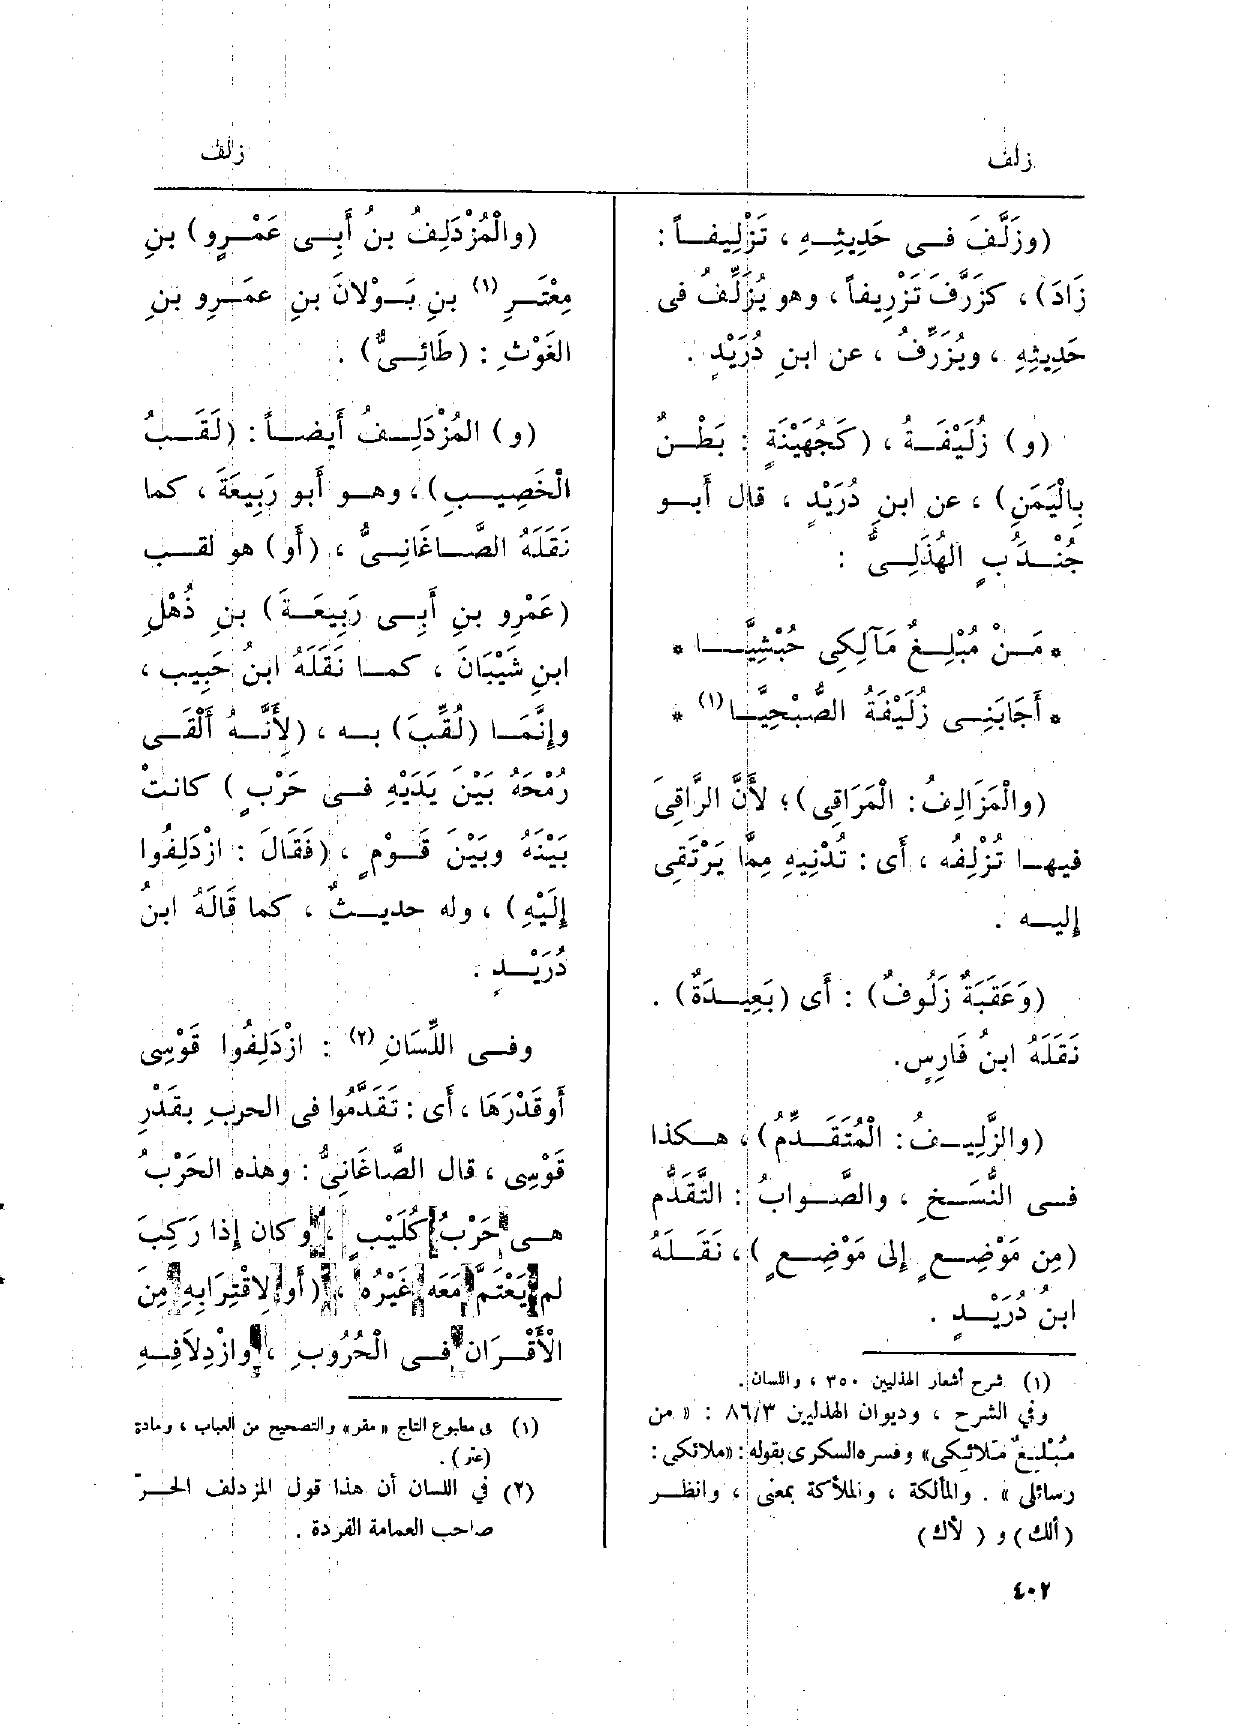 زلف
زلف
(وزَلَّفَ فى حَدِيثِهِ ، تَزْلِيفاً :
زَادَ) ، كزَرَّفَ تَزْرِيفاً ، وهو يُزَلِّفُ فى
حَدِيثِهِ ، ويُزَرِّفُ ، عن ابنِ دُرَيْدٍ .
(و) زُلَيْفَةُ ، (كَجُهَيْنَةٍ : بَطْنٌ
بِالْيَمَنِ) ، عن ابنِ دُرَيْدٍ ، قال أَبو
جُنْدَبٍ الهُذَلِىُّ :
* مَنْ مُبْلِغٌ مَآلِكِى حُبْشِيَّا *
* أَجَابَنِى زُلَيْفَةُ الصُّبْحِيَّا (١) *
(والْمَزَالِفُ : الْمَرَاقِى) ؛ لأَنَّ الرَّاقِىَ
فيها تُزْلِفُه ، أَى : تُدْنِيهِ مِمَّا يَرْتَقِى
إِليه .
(وَعَقَبَةٌ زَلُوفٌ) : أَى (بَعِيدَةٌ) .
نَقَلَهُ ابنُ فَارِسٍ.
(والزَّلِيفُ : الْمُتَقَدِّمُ) ، هكذا
فى النُّسَخِ ، والصَّوابُ : التَّقَدُّم
(مِن مَوْضِعٍ إِلى مَوْضِعٍ) ، نَقَلَهُ
ابنُ دُرَيْدٍ .
(١) شرح أشعار الهذليين ٣٥٠ ، واللسان .
وفي الشرح ، وديوان الهذليين ٨٦/٣ : « من
مُبْلِغٌ مَلائِكِى» وفسره السكرى بقوله : «ملائكى :
رسائلى » . والمألكة ، والملأكة بمعنى ، وانظر
(ألك) و ( لأك)
٤٠٢
(والْمُزْدَلِفُ بنُ أَبِى عَمْرٍو) بنِ
مِعْتَرِ (١) بنِ بَوْلانَ بنِ عمَرِو بنِ
الغَوْثِ : (طَائِىٌّ) .
(و) المُزْدَلِفُ أَيضاً : (لَقَبُ
الْخَصِيبِ) ، وهو أَبو رَبِيعَةَ ، كما
نَقَلَهُ الصَّاغَانِىُّ ، (أَو) هو لقب
(عَمْرِو بنِ أَبِى رَبِيعَةَ) بنِ ذُهْلِ
ابنِ شَيْبَانَ ، كما نَقَلَهُ ابنُ حَبِيبٍ ،
وإِنَّمَا (لُقِّبَ) به ، (لأَنَّهُ أَلْقَى
رُمْحَهُ بَيْنَ يَدَيْهِ فى حَرْبٍ ) كانتْ
بَيْنَهُ وبَيْنَ قَوْمٍ ، (فَقَالَ : ازْدَلِفُوا
إِلَيْهِ) ، وله حديثٌ ، كما قَالَهُ ابنُ
دُرَيْدٍ .
وفى اللِّسَانِ (٢) : ازْدَلِفُوا قَوْسِى
أَوقَدْرَهَا ، أَى : تَقَدَّمُوا فى الحربِ بقَدْرِ
قَوْسِى ، قال الصَّاغَانِىُّ : وهذه الحَرْبُ
هى حَرْبُ كُلَيْبٍ ، وكان إِذا رَكِبَ
لم يَعْتَمَّ مَعَه غَيْرُه ، (أَو لِاقْتِرَابِهِ مِنَ
الْأَقْرَانِ فى الْحُرُوبِ ، وازْدِلَافِهِ
(١) فى مطبوع التاج «مقر» والتصحيح من العباب ، ومادة
(عتر) .
(٢) في اللسان أن هذا قول المزدلف الحرّ
صاحب العمامة الفردة .